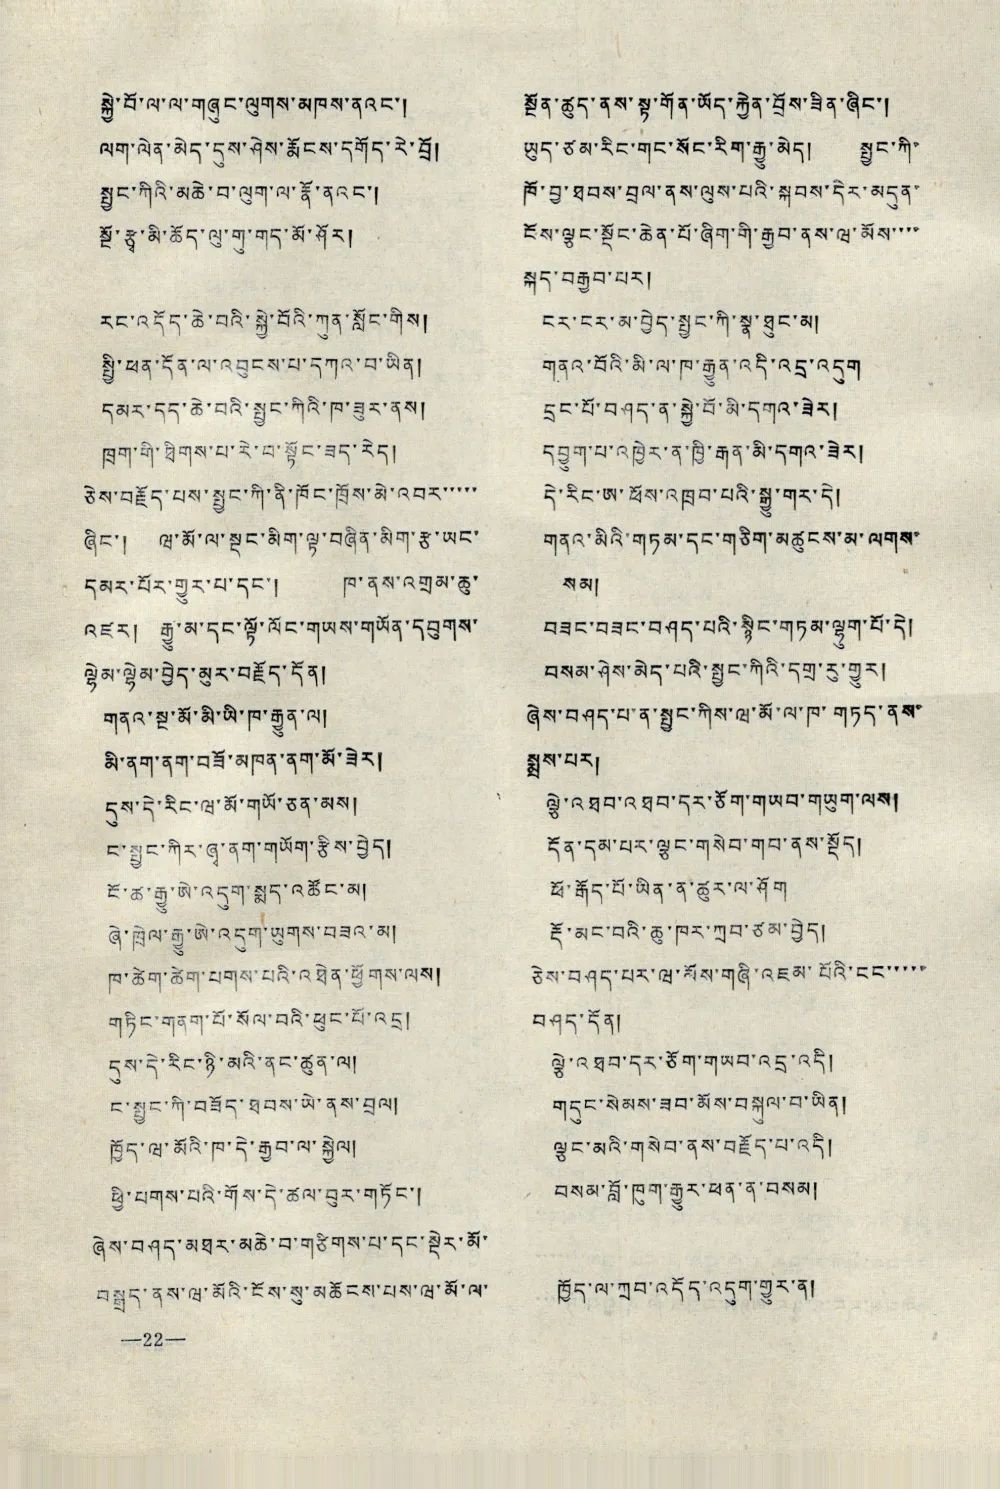 སྐྱེ་བོ་ལ་ལ་གཞུང་ལུགས་མཁས་ན་འང་།
ལག་ལེན་མེད་དུས་ཤེས་རྨོངས་དགོད་རེ་བྲོ།
སྤྱང་ཀིའི་མཆེ་བ་ལུག་ལ་རྣོ་ན་འང་།
སྔོ་རྩྭ་མི་ཆོད་ལུ་གུ་གད་མོ་ཤོར།
རང་འདོད་ཆེ་བའི་སྐྱེ་བོའི་ཀུན་སློང་གིས།
སྤྱི་ཕན་དོན་ལ་འབུངས་པ་དཀའ་བ་ཡིན།
དམར་དད་ཆེ་བའི་སྤྱང་ཀིའི་ཁ་ཟུར་ནས།
ཁྲག་གི་ཐིགས་པ་རེ་བ་སྟོང་ཟད་རེད།
ཅེས་བརྗོད་པས་སྤྱང་ཀི་ནི་ཁོང་ཁྲོས་མེ་འབར་་་་་
ཞིང་། ཝ་མོ་ལ་སྡང་མིག་ལྟ་བཞིན་མིག་རྩ་ཡང་
དམར་པོར་གྱུར་པ་དང་། ཁ་ནས་འགྲམ་ཆུ་
འཛར། རྒྱུ་མ་དང་ལྟོ་ལོང་གཡས་གཡོན་དབུགས་
ལྷེམ་ལྷེམ་བྱེད་མུར་བརྗོད་དོན།
གནའ་སྔ་མོ་མི་ཡི་ཁ་རྒྱུན་ལ།
མི་ནག་ནག་བཟོ་མཁན་ནག་མོ་ཟེར།
དུས་དེ་རིང་ཝ་མོ་གཡོ་ཅན་མས།
ང་སྤྱང་ཀིར་ཞྭ་ནག་གཡོག་རྩིས་བྱེད།
ངོ་ཚ་རྒྱུ་ཨེ་འདུག་སྨད་འཚོང་མ།
ཞེ་ཁྲེལ་རྒྱུ་ཨེ་འདུག་ཡུགས་བཟའ་མ།
ཁ་ཆེག་ཆེག་པགས་པའི་འཐེན་ཕྱོགས་ལས།
གཏིང་གནག་པོ་སོལ་བའི་ཕུང་པོ་འདྲ།
དུས་དེ་རིང་ཉི་མའི་ནང་ཚུན་ལ།
ང་སྤྱང་ཀི་བཟོད་ཐབས་ཡེ་ནས་བྲལ།
ཁྱོད་ཝ་མོའི་ཁ་དེ་རྒྱབ་ལ་སྐྱེལ།
ཕྱི་པགས་པའི་གོས་དེ་ཚལ་བུར་གཏོང་།
ཞེས་བཤད་མཐར་མཆེ་བ་གཙིགས་པ་དང་སྡེར་མོ་
བསྒྲད་ནས་ཝ་མོའི་ངོས་སུ་མཆོངས་པས་ཝ་མོ་ལ་
—22—
སྔོན་ཚུད་ནས་སྟ་གོན་ཡོད་རྐྱེན་བྲོས་ཟིན་ཞིང་།
ཡུད་ཙམ་རིང་གང་སོང་རིག་རྒྱུ་མེད། སྤྱང་ཀི་
ཁོ་བྱ་ཐབས་བྲལ་ནས་ལུས་པའི་སྐབས་དེར་མདུན་
ངོས་ལྕང་སྡོང་ཆེན་པོ་ཞིག་གི་རྒྱབ་ནས་ཝ་མོས་་་་
སྐད་བརྒྱབ་པར།
ངར་ངར་མ་བྱེད་སྤྱང་ཀི་སྣ་ཐུང་མ།
གནའ་བོའི་མི་ལ་ཁ་རྒྱུན་འདི་འདྲ་འདུག
དྲང་པོ་བཤད་ན་སྐྱེ་བོ་མི་དགའ་ཟེར།
དབྱུག་པ་འཁྱེར་ན་ཁྱི་རྒན་མི་དགའ་ཟེར།
དེ་རིང་ཨ་ཕོས་འཁྲབ་པའི་སྒྱུ་གར་དེ།
གནའ་མིའི་གཏམ་དང་གཅིག་མཚུངས་མ་ལགས་
སམ།
བཟང་བཟང་བཤད་པའི་སྙིང་གཏམ་ལྷུག་པོ་དེ།
བསམ་ཤེས་མེད་པའི་སྤྱང་ཀིའི་དགྲ་རུ་གྱུར།
ཞེས་བཤད་པ་ན་སྤྱང་ཀིས་ཝ་མོ་ལ་ཁ་གཏད་ནས་
སྨྲས་པར།
ལྕེ་འཐབ་འཐབ་དར་ཅོག་གཡབ་གཡུག་ལས།
དོན་དམ་པར་ལྕང་གསེབ་གབ་ནས་སྡོད།
ཕོ་རྒོད་པོ་ཡིན་ན་ཚུར་ལ་ཤོག
རྡོ་མང་བའི་ཆུ་ཁར་ཀྲབ་ཙམ་བྱེད།
ཅེས་བཤད་པར་ཝ་མོས་གཞི་འཇམ་པོའི་ངང་་་་་
བཤད་དོན།
ལྕེ་འཐབ་དར་ཅོག་གཡབ་འདྲ་འདི།
གདུང་སེམས་ཟབ་མོས་བསྐུལ་བ་ཡིན།
ལྕང་མའི་གསེབ་ནས་བརྗོད་པ་འདི།
བསམ་བློ་ཁུག་རྒྱུར་ཕན་ན་བསམ།
ཁྱོད་ལ་ཀྲབ་འདོད་འདུག་གྱུར་ན།